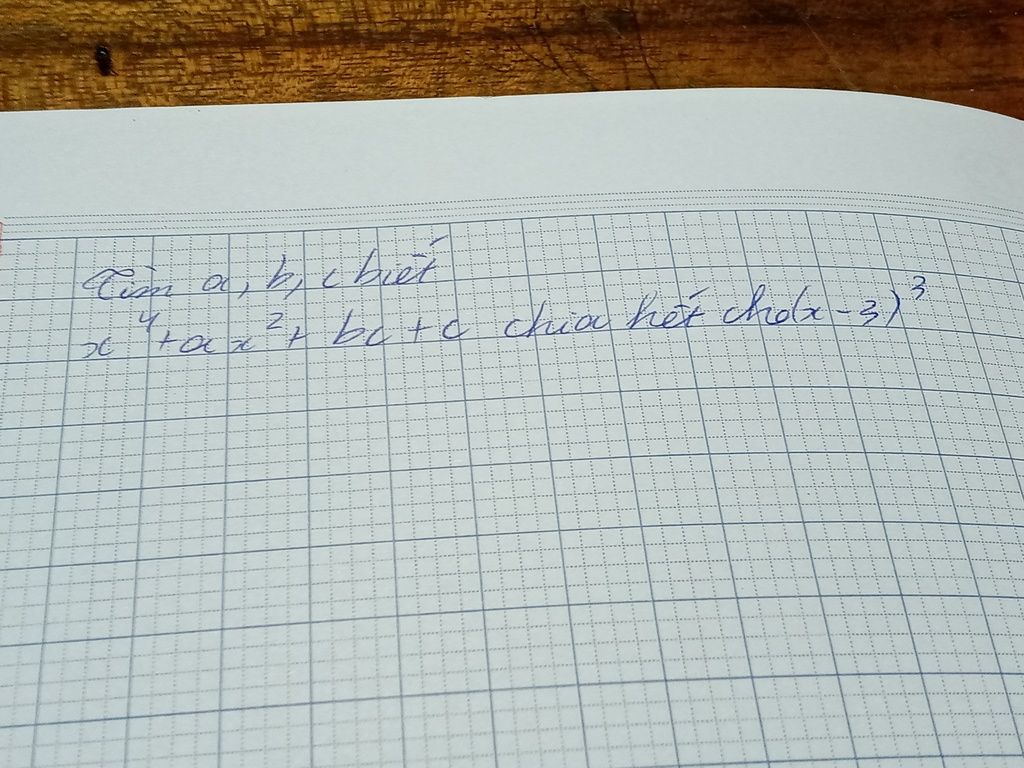 Tìm a, b, c biết
x⁴ + ax² + bx + c chia hết cho (x - 3)³